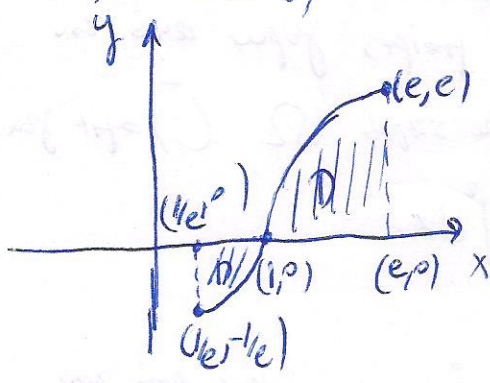 y
(e,e)
(1/e,0)
D
D
(1,0)
(e,0)
x
(1/e,-1/e)